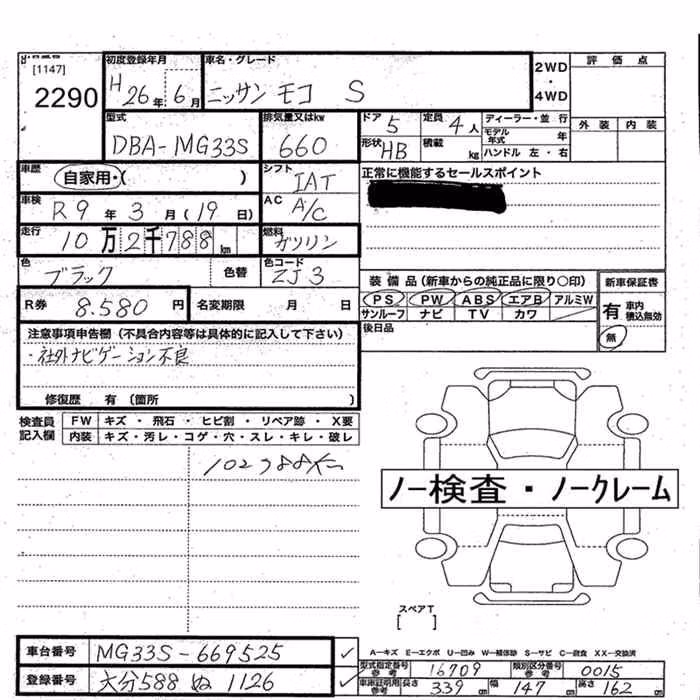 [1147]
2290
初度登録年月
H26年6月
車名・グレード
ニッサン モコ S
2WD・4WD
評価点
外装 内装
型式
DBA-MG33S
排気量又はkw
660
ドア 5
定員 4人
形状 HB
積載 kg
ディーラー・並行
モデル年式 年
ハンドル 左・右
車歴
自家用・( )
シフト
IAT
正常に機能するセールスポイント
車検
R9年3月(19日)
AC
A/C
走行
10万2千788km
燃料
ガソリン
色
ブラック
色替
色コード
ZJ3
装備品(新車からの純正品に限り○印)
PS PW ABS エアB アルミW
サンルーフ ナビ TV カワ
新車保証書
有 車内積込無効
無
R券 8.580円
名変期限 月 日
後日品
注意事項申告欄(不具合内容等は具体的に記入して下さい)
・社外ナビゲーション不良
修復歴 有 (箇所 )
検査員記入欄
FW キズ・飛石・ヒビ割・リペア跡・X要
内装 キズ・汚レ・コゲ・穴・スレ・キレ・破レ
102788K
ノー検査・ノークレーム
スペアT
[ ]
車台番号 MG33S-669525
登録番号 大分588 ぬ 1126
A=キズ E=エクボ U=凹み W=補修跡 S=サビ C=腐食 XX=交換済
型式指定番号参考 16709
類別区分番号参考 0015
車庫証明用参考 長さ 339cm 幅 147cm 高さ 162cm